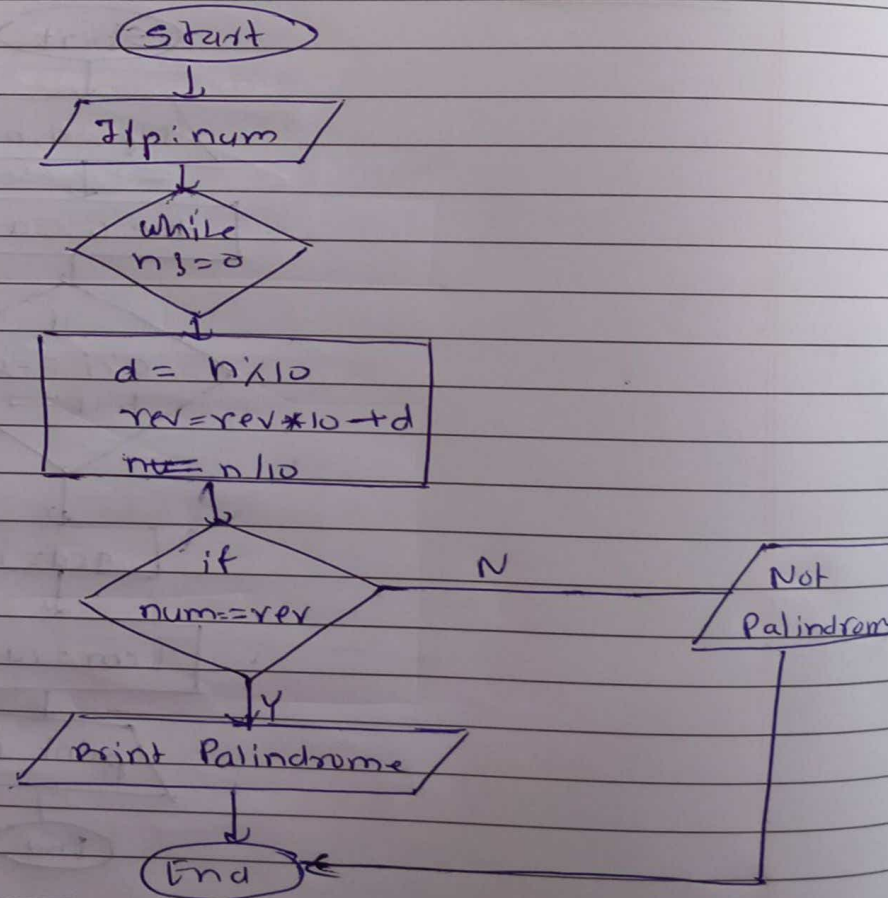 Start
I/p: num
while
n != 0
d = n%10
rev=rev*10+d
n = n/10
if
num==rev
N
Not
Palindrom
Y
print Palindrome
End